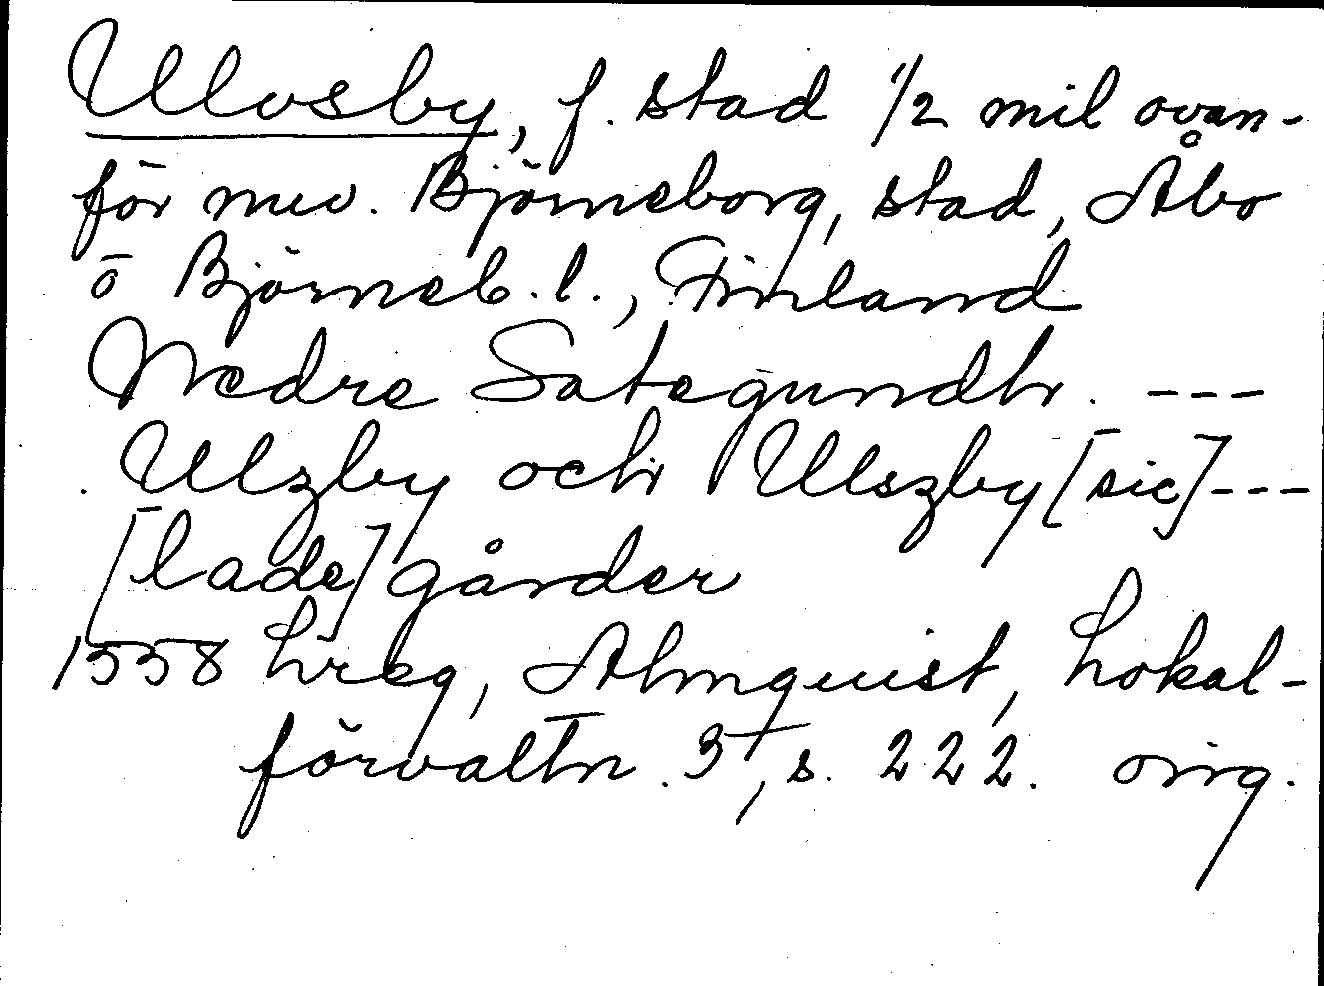 Ulvsby, f. stad 1/2 mil ovan-
för nuv. Björneborg, stad, Åbo
o Björneb. l., Finland
Nedre Sategundh. ---
Ulzby och Ulszby [sic] ---
[lade]gårder
1558 hreg, Almquist, Lokal-
förvaltn. 3, s. 222. orig.